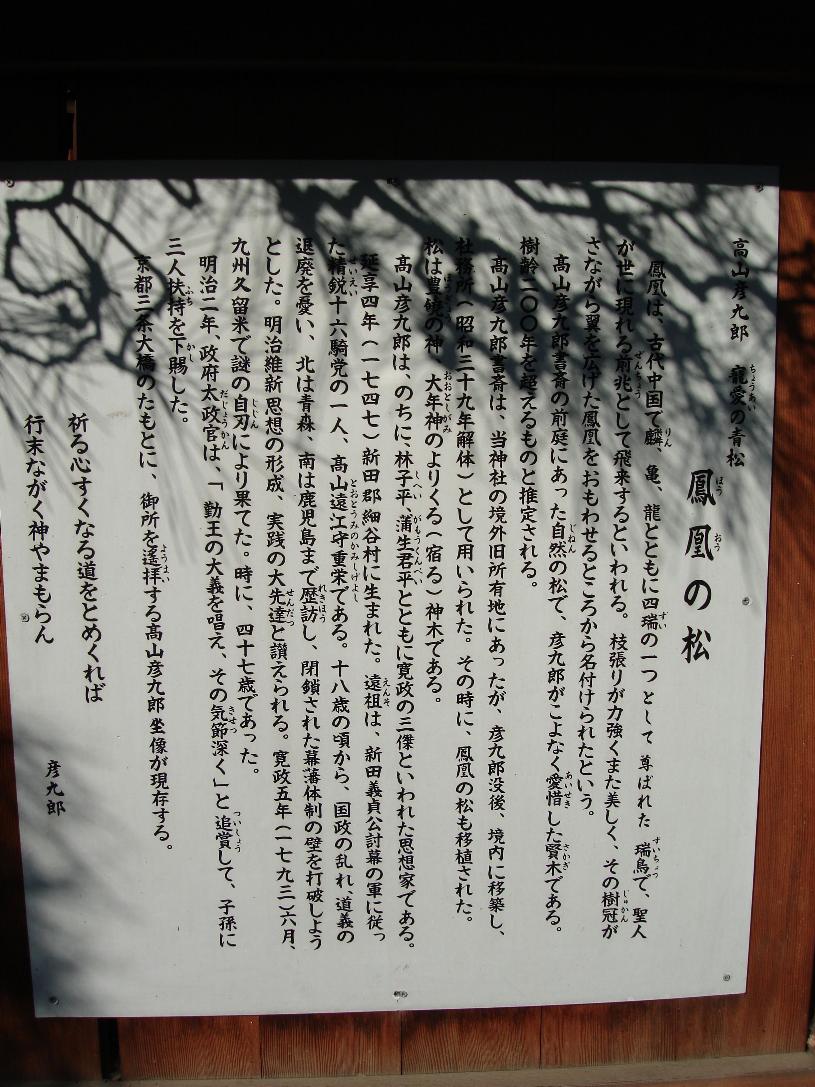 高山彦九郎 寵愛の青松
鳳凰の松
鳳凰は、古代中国で麟、亀、龍とともに四瑞の一つとして 尊ばれた 瑞鳥で、聖人
が世に現れる前兆として飛来するといわれる。枝張りが力強くまた美しく、その樹冠が
さながら翼を広げた鳳凰をおもわせるところから名付けられたという。
高山彦九郎書斎の前庭にあった自然の松で、彦九郎がこよなく愛惜した賢木である。
樹齢二〇〇年を超えるものと推定される。
高山彦九郎書斎は、当神社の境外旧所有地にあったが、彦九郎没後、境内に移築し、
社務所(昭和三十九年解体)として用いられた。その時に、鳳凰の松も移植された。
松は豊饒の神、大年神のよりくる(宿る)神木である。
高山彦九郎は、のちに、林子平、蒲生君平とともに寛政の三傑といわれた思想家である。
延享四年(一七四七)新田郡細谷村に生まれた。遠祖は、新田義貞公討幕の軍に従っ
た精鋭十六騎党の一人、高山遠江守重栄である。十八歳の頃から、国政の乱れ、道義の
退廃を憂い、北は青森、南は鹿児島まで歴訪し、閉鎖された幕藩体制の壁を打破しよう
とした。明治維新思想の形成、実践の大先達と讃えられる。寛政五年(一七九三)六月、
九州久留米で謎の自刃により果てた。時に、四十七歳であった。
明治二年、政府太政官は、「勤王の大義を唱え、その気節深く」と追賞して、子孫に
三人扶持を下賜した。
京都三条大橋のたもとに、御所を遙拝する高山彦九郎坐像が現存する。
祈る心すくなる道をとめくれば
行末ながく神やまもらん
彦九郎